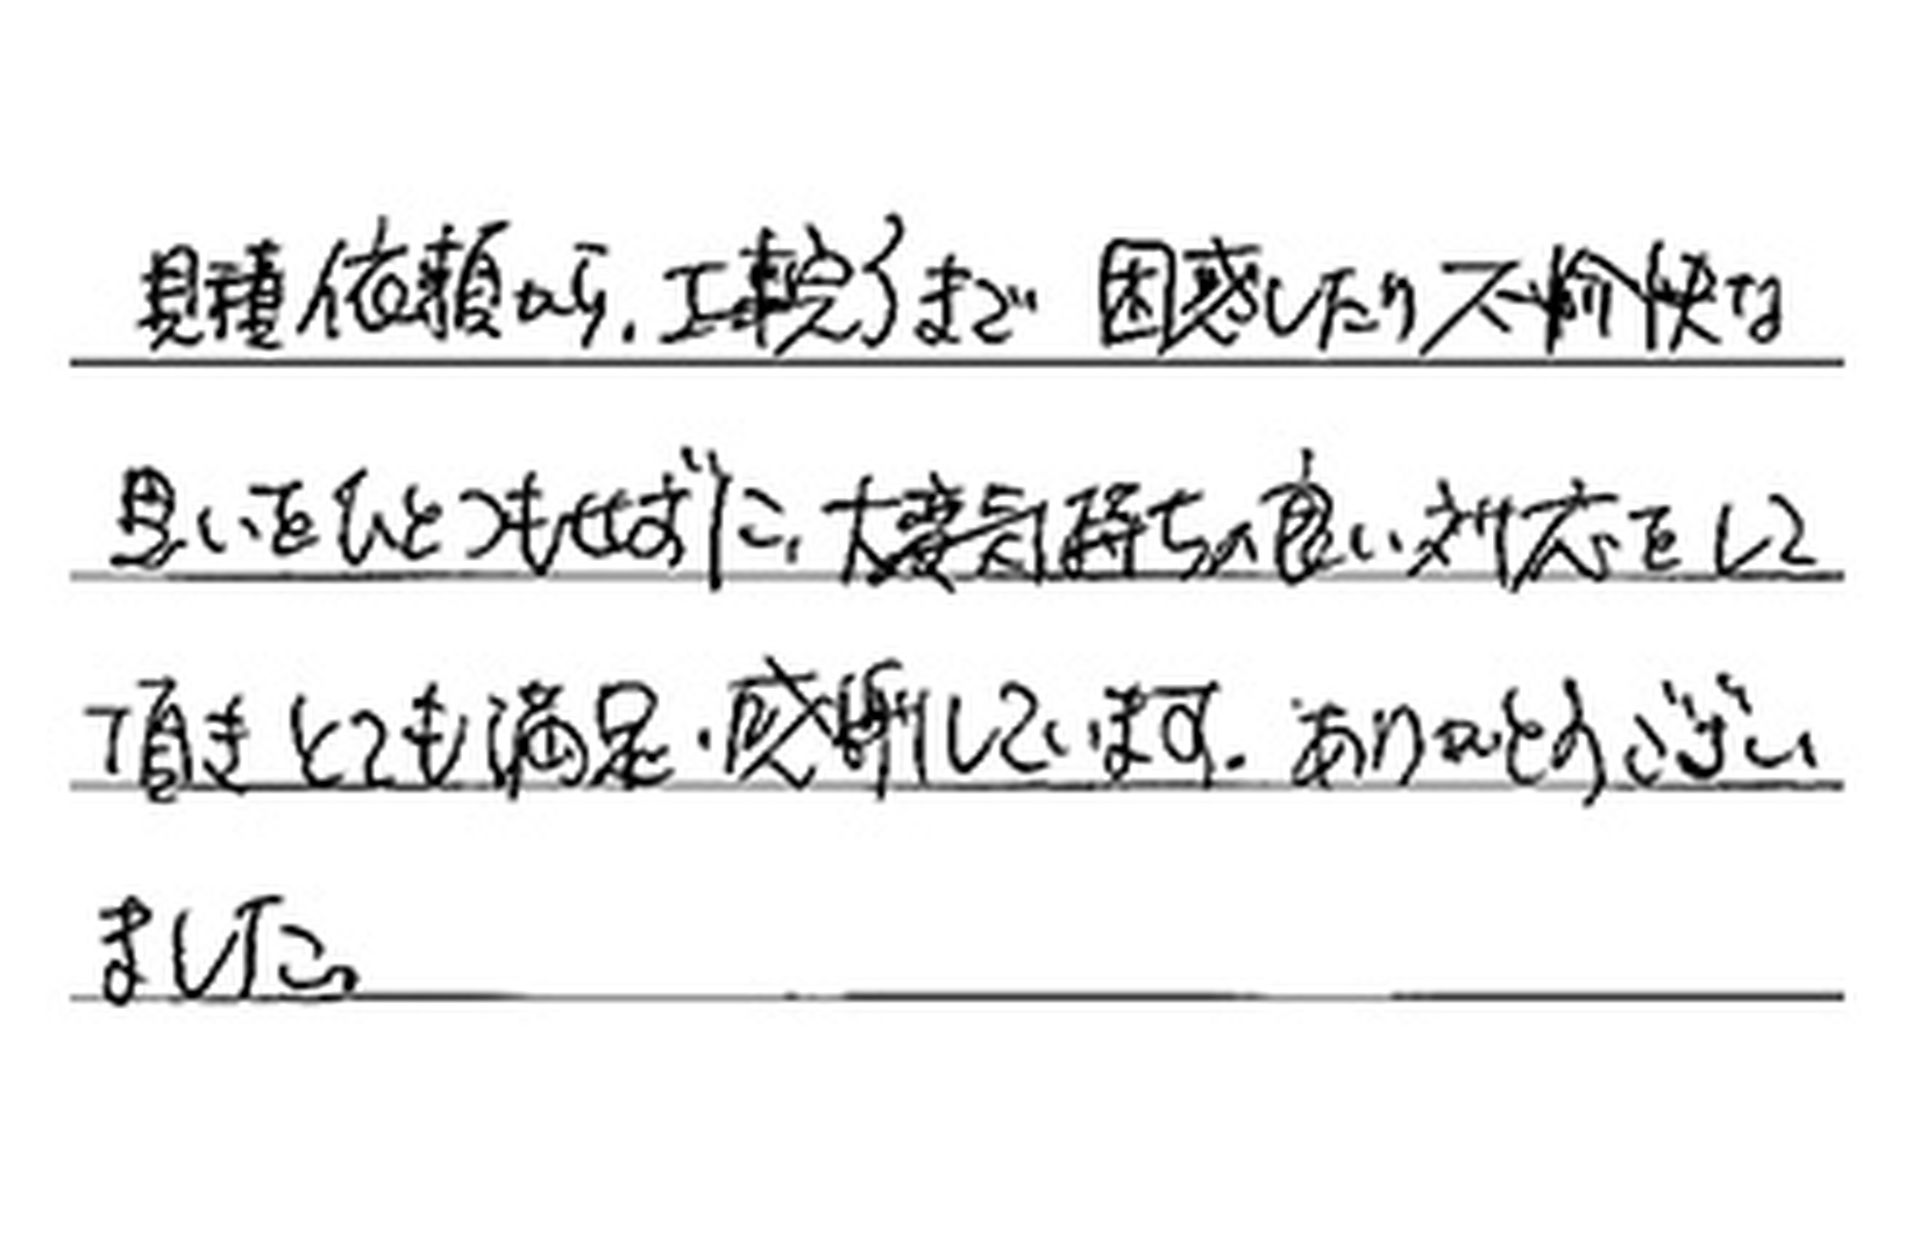 見積依頼から、工事完了まで 困惑したり不愉快な
思いをひとつもせずに、大変気持ちの良い対応をして
頂きとても満足・感謝しています。ありがとうござい
ました。